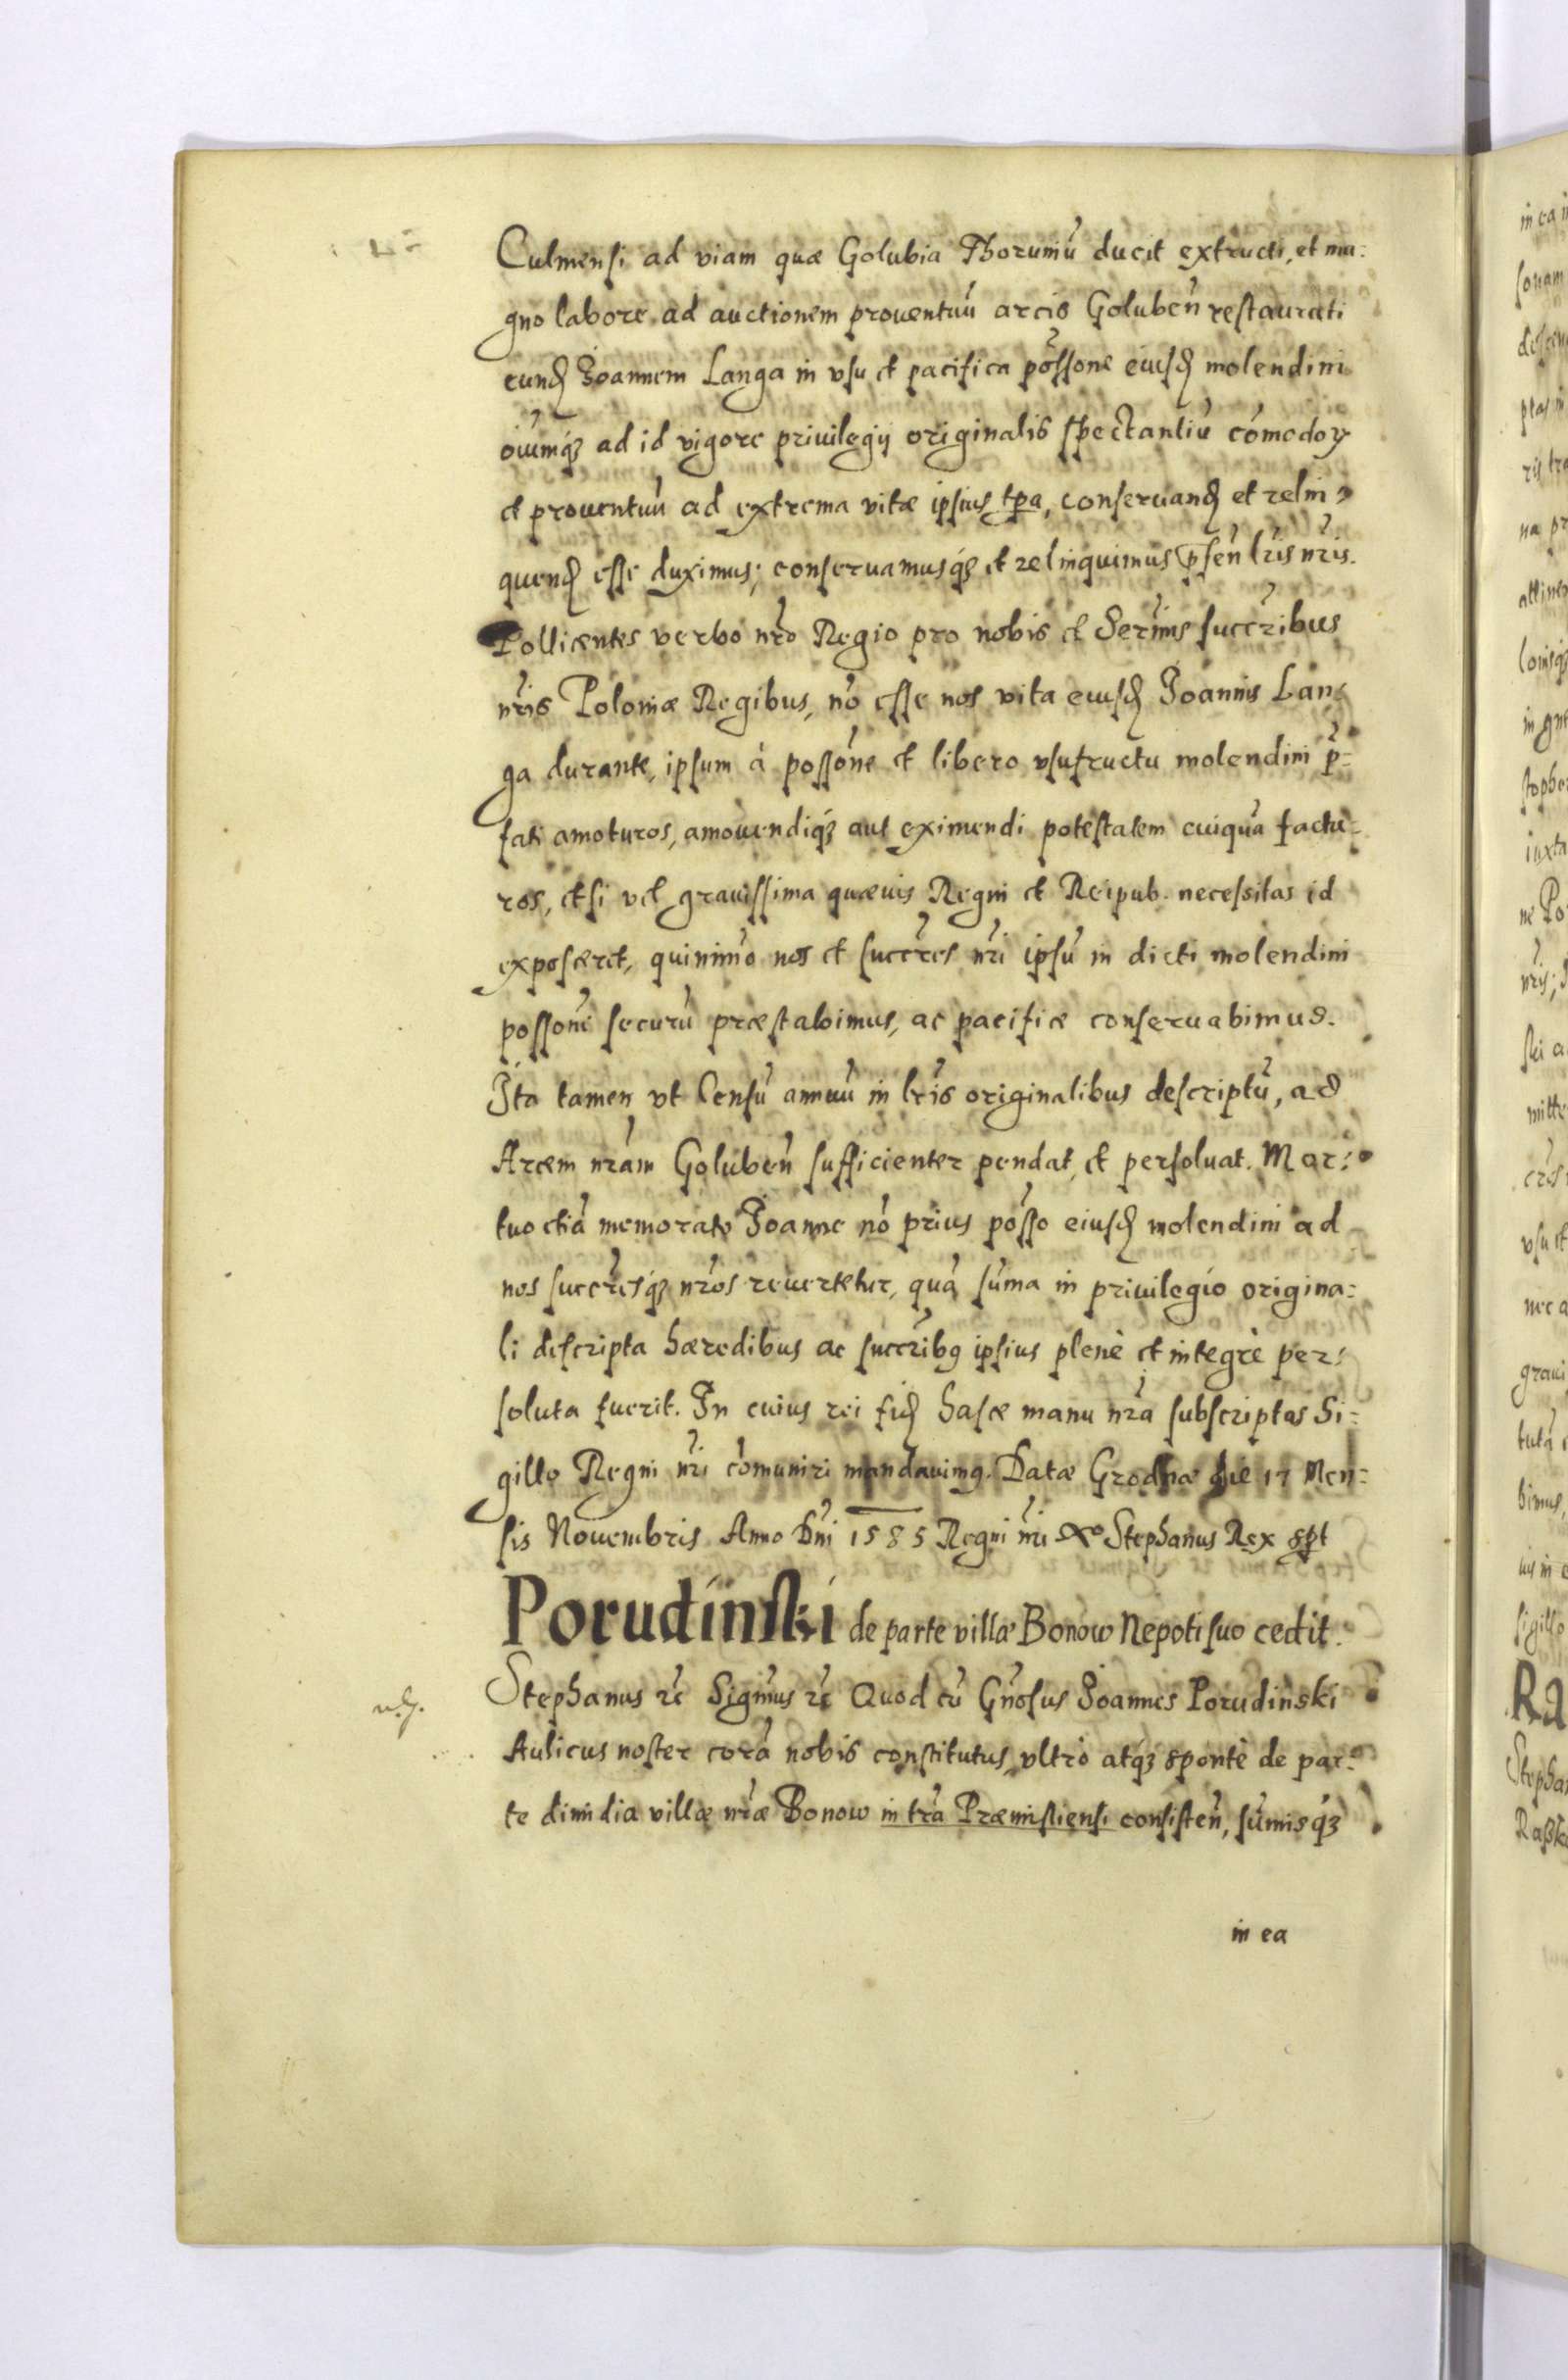 Culmensi ad viam quæ Golubia Thoruniũ ducit extructi, et ma:
gno labore ad auctionem prouentuũ arcis Golubeñ restaurati
eund Joannem Langa in vsu et pacifica possone eiusd molendini
oiumq; ad id vigore priuilegij originalis spectantiũ comodoꝝ
et prouentuũ ad extrema vitæ ipsius tpa, conseruand et relin:
quend esse duximus; conseruamusq; et relinquimus pseñ lris nris.
Pollicentes verbo nro Regio pro nobis et Sermis succribus
nris Poloniæ Regibus, no esse nos vita eiusd Joannis Lan:
ga durante, ipsum à possone et libero vsufructu molendini p:
fati amoturos, amouendiq; aut eximendi potestatem cuiquã factu:
ros, etsi vel grauissima quæuis Regni et Reipub. necessitas id
exposceret, quinimo nos et succres nri ipsũ in dicti molendini
possone securũ præstabimus, ac pacifice conseruabimus.
Ita tamen vt Censũ annuũ in lris originalibus descriptũ, ad
Arcem nram Golubeñ sufficienter pendat, et persoluat. Mor:
tuo etiã memorato Joanne no prius posso eiusd molendini ad
nos succresq; nros reuertetur, quã suma in priuilegio origina:
li descripta hæredibus ac succribꝰ ipsius plenè et integrè per:
soluta fuerit. In cuius rei fid hasce manu nra subscriptas Si:
gillo Regni nri comuniri mandauimꝰ. Datæ Grodnæ die 17 Men:
sis Nouembris Anno Dni 1585 Regni nri Xº Stephanus Rex sspt
Porudinski de parte villæ Bonow Nepoti suo cedit.
Stephanus ꝛc Sigmus ꝛc Quod cũ Gnosus Joannes Porudinski
Aulicus noster corã nobis constitutus, vltrò atq; spontè de par:
te dimidia villæ nræ Bonow in tra Præmisliensi consisteñ, sumisq;
in ea